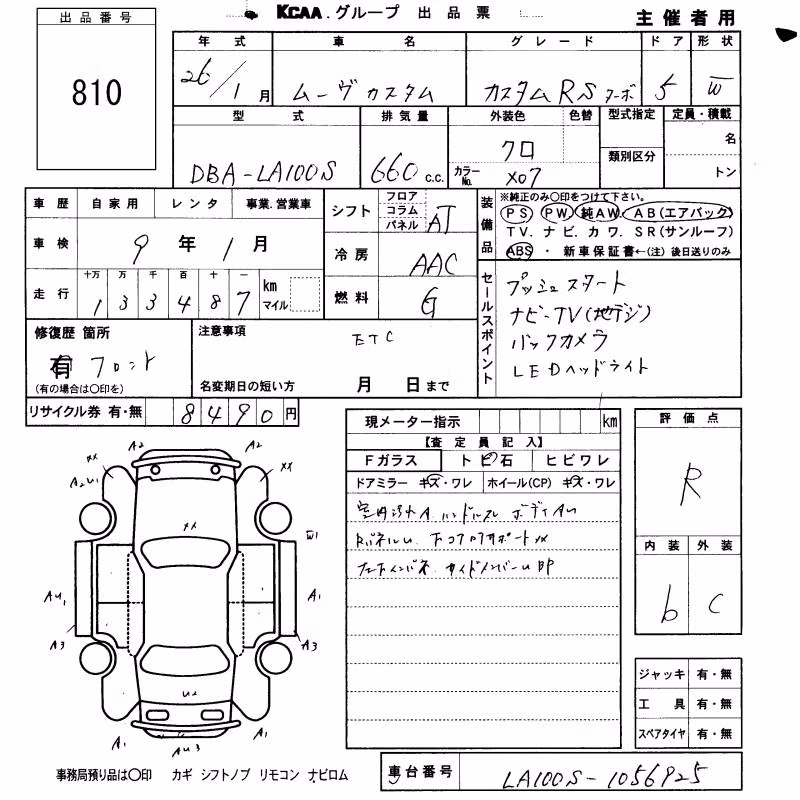 KCAA.グループ 出品票
主催者用
出品番号
810
年式 車名 グレード ドア 形状
26/1月 ムーヴカスタム カスタムRS ターボ 5 W
型式 排気量 外装色 色替 型式指定 定員・積載
名
類別区分
DBA-LA100S 660 c.c. クロ
カラーNo. X07
トン
車歴 自家用 レンタ 事業.営業車
シフト フロア コラム パネル AT
装備品 ※純正のみ○印をつけて下さい。
PS PW 純AW. AB(エアバック)
TV. ナビ. カワ. SR(サンルーフ)
ABS ・ 新車保証書←(注)後日送りのみ
車検 9年1月
冷房 AAC
走行 十万 万 千 百 十 一
133487 km マイル
燃料 G
セールスポイント
プッシュスタート
ナビ-TV(地デジ)
バックカメラ
LEDヘッドライト
修復歴 箇所
有 フロント
(有の場合は○印を)
注意事項 ETC
名変期日の短い方 月 日まで
リサイクル券 有・無 8490円
現メーター指示 km
【査定員記入】
Fガラス トビ石 ヒビワレ
ドアミラー キズ・ワレ ホイール(CP) キズ・ワレ
室内汚れA ハンドルスレ ボディAU
RパネルU 下コアロアサポートXX
サイドメンバーU
評価点
R
内装 外装
b C
A2 A2
XX XX
A2U1
XX
W1
AU1 A1
A3 A3
U2
A1 A1
AU3
ジャッキ 有・無
工具 有・無
スペアタイヤ 有・無
事務局預り品は○印 カギ シフトノブ リモコン ナビロム
車台番号 LA100S-1056925